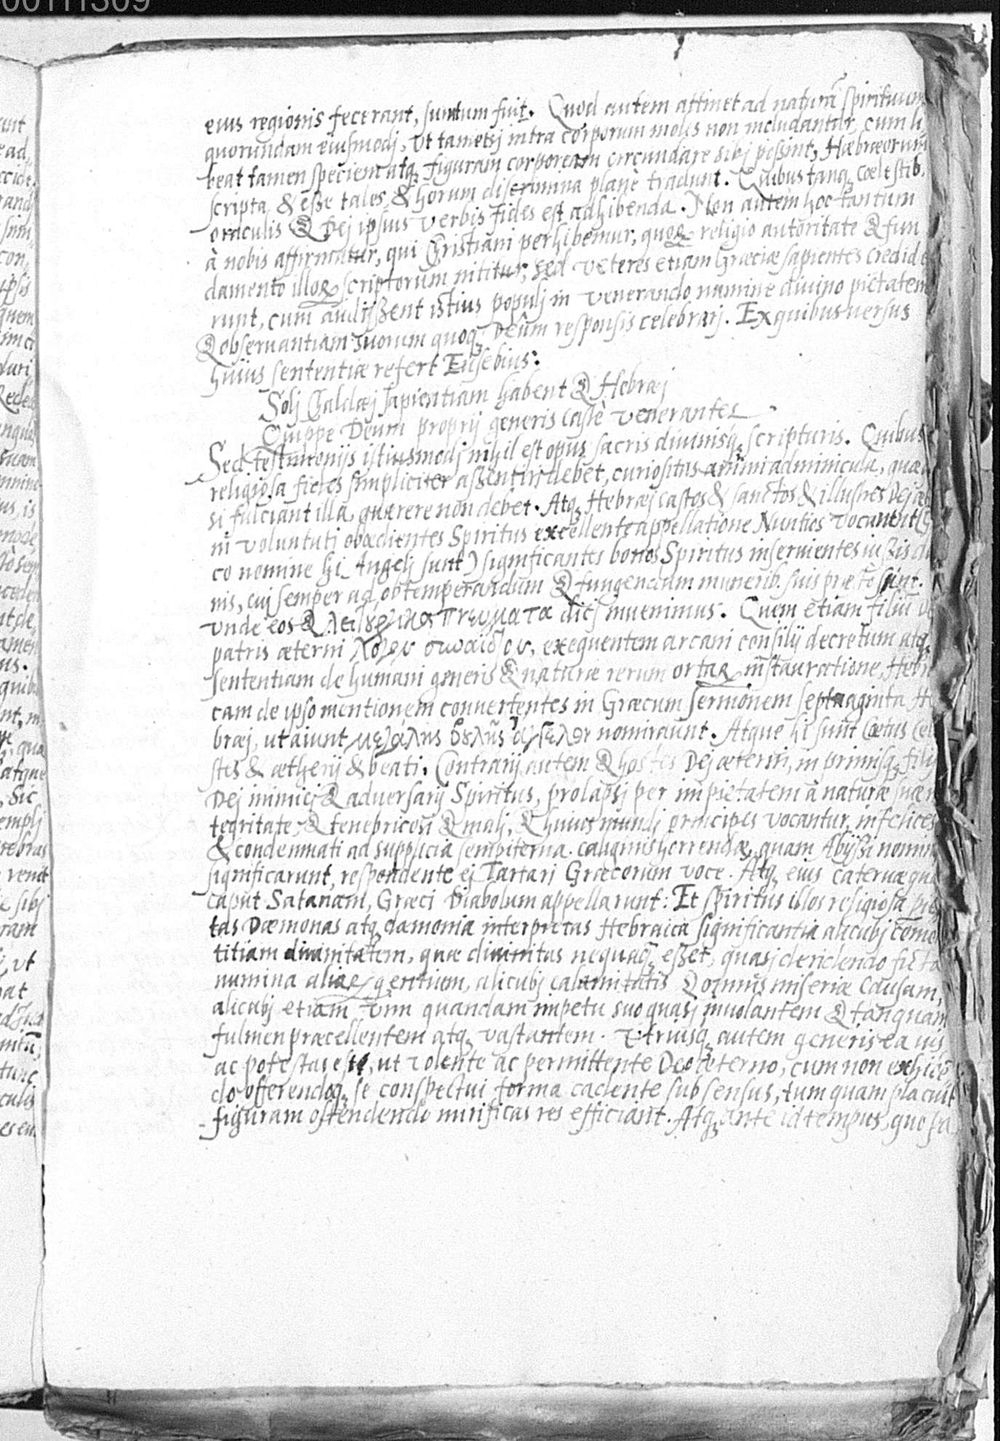 eius regionis fecerant, sumtum fuit. Quod autem attinet ad naturā spirituum
quorundam eiusmodj, Ut tametsj intra corporum molis non includantur, cum li
ceat tamen speciem atq3 figuram corpoream circundare sibj possint, Hæbræorum
scripta, & esse tales, & horum discrimina planè tradunt. Quibus tanq3 cœlestib3
oraculis & Dej ipsius verbis fides est adhibenda. Non autem hoc tantum
à nobis affirmatur, qui Christiani perhibemur, quoꝝ religio autoritate & fun
damento illoꝝ scriptorum nititur, sed veteres etiam Græciæ sapientes credide
runt, cum audijssent istius populj in venerando numine divino pietatem
& observantiam suorum quoq3 Deûm responsis celebrarj. Ex quibus versus
huius sententiæ refert Eusebius:
Solj Chaldæj sapientiam habent & Hebræj
Quippe Deum proprij generis caste venerantes.
Sed testimonijs istiusmodj nihil est opus sacris divinisq3 scripturis. Quibus
religiosa fides simpliciter assentiri debet, curiositas animi adminicula, quæ
si fulciant illa, quærere non debet. Atq3 Hebræj castos & sanctos & illustres Dej
ni voluntati obædientes Spiritus excellente appellatione Nuntios vocarunt
co nomine hi Angelj sunt) significantes bonos Spiritus inservientes iussis
nis, cuj semper ad obtemperandum & fungendum munerib. suis præstò sunt.
Unde eos & λειτουργικὰ πνεύματα dicj invenimus. Quem etiam filiū
patris æterni λόγον exequentem arcani consilij decretum atq3
sententiam de humani generis & naturæ rerum ortaꝝ instauratione, Hebr
cam de ipso mentionem convertentes in Græcum sermonem septuaginta
bræj, ut aiunt μεγάλης βουλῆς ἄγγελον nominarunt. Atque hi sunt Cœtus cæl
stes & ætherij & beati. Contrarij autem & hostes Dej æterni, in primisq3 filij
Dej inimicj & adversarij Spiritus, prolapsj per impietatem à naturæ suæ in
tegritate & tenebricosi & malj, & huius mundj principes vocantur, infelices
& condemnati ad supplicia sempiterna caliginis horrendæ, quam Abyssi nomin
significarunt, respondente ej Tartari Græcorum voce. Atq3 eius catervæ
caput Satanam, Græci Diabolum appellarunt: Et spiritus illos religiosa pie
tas Dæmonas atq3 dæmonia interpretas Hebraica significantia alicubj
titiam divinitatem, quæ divinitus nequaq3 esset, quasj deridendo ficta
numina aliaꝝ gentium, alicubj calamitatis & omnis miseriæ causam,
alicubj etiam vim quandam impetu suo quasj involantem & tanquam
fulmen præcellentem atq3 vastantem. Utriusq3 autem generis ea vis
ac potestas est, ut volente ac permittente Deo æterno, cum non exhiben
do offerendoq3 se conspectui forma cadente sub sensus, tum quam placuit
figuram ostendendo mirificas res efficiant. Atq3 ante id tempus, quo